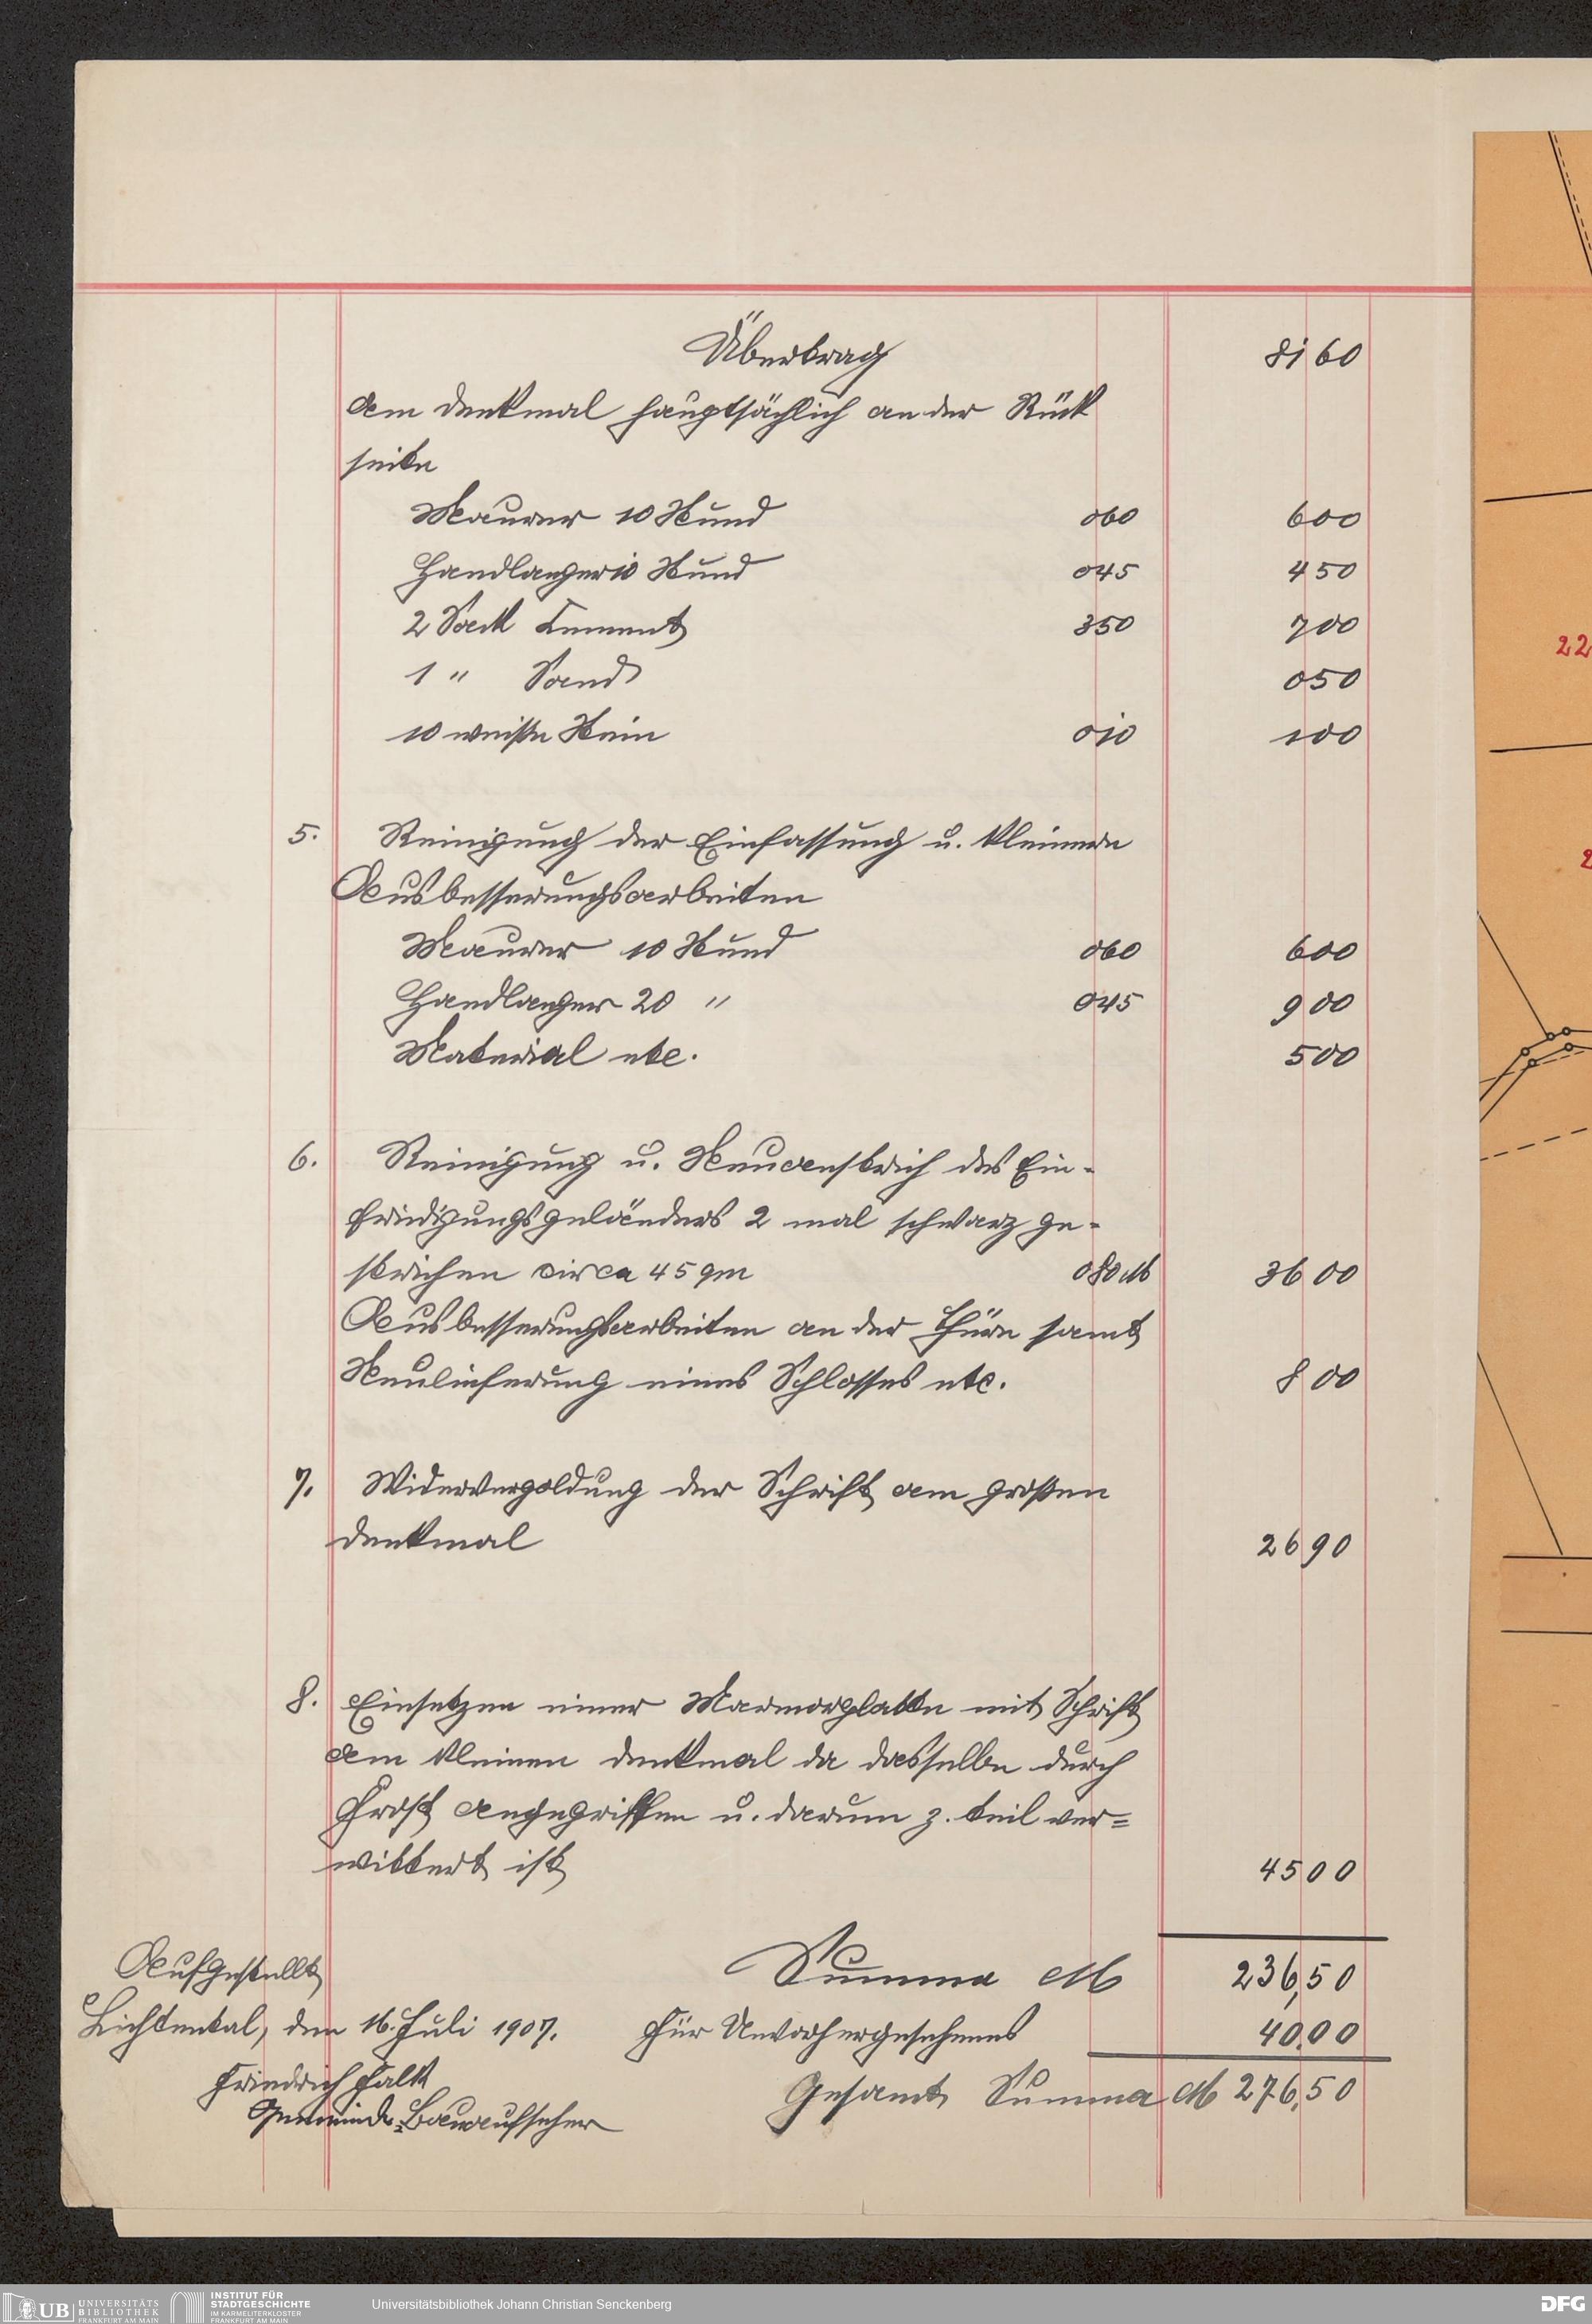 Übertrag 81 60
am Denkmal hauptsächlich an der Rück
seite
Maurer 10 Stund 0 60 6 00
Handlanger 10 Stund 0 45 4 50
2 Sack Zement 3 50 7 00
1 " Sand 0 50
10 weiße Stein 0 10 1 00
5. Reinigung der Einfassung u. kleinere
Ausbesserungsarbeiten
Maurer 10 Stund 0 60 6 00
Handlanger 20 " 0 45 9 00
Material etc. 5 00
6. Reinigung u. Neuanstrich des Ein-
friedigungsgeländers 2 mal schwarz ge-
strichen circa 45 qm 0 80 M 36 00
Ausbesserungsarbeiten an der Thüre samt
Neulieferung eines Schlosses etc. 8 00
7. Widervergoldung der Schrift am großen
Denkmal 26 90
8. Einsetzen einer Marmorplatte mit Schrift
am kleinen Denkmal da dasselbe durch
Frost angegriffen u. darum z. teil ver=
wittert ist 45 00
Summa M 236,50
Aufgestellt
Lichtental, den 16. Juli 1907. Für Unvorhergesehenes 40,00
Friedrich Falk
Gesamt Summa M 276,50
Gemeinde-Bauaufseher
22
2
UB UNIVERSITÄTS
BIBLIOTHEK
FRANKFURT AM MAIN
INSTITUT FÜR
STADTGESCHICHTE
IM KARMELITERKLOSTER
FRANKFURT AM MAIN
Universitätsbibliothek Johann Christian Senckenberg
DFG